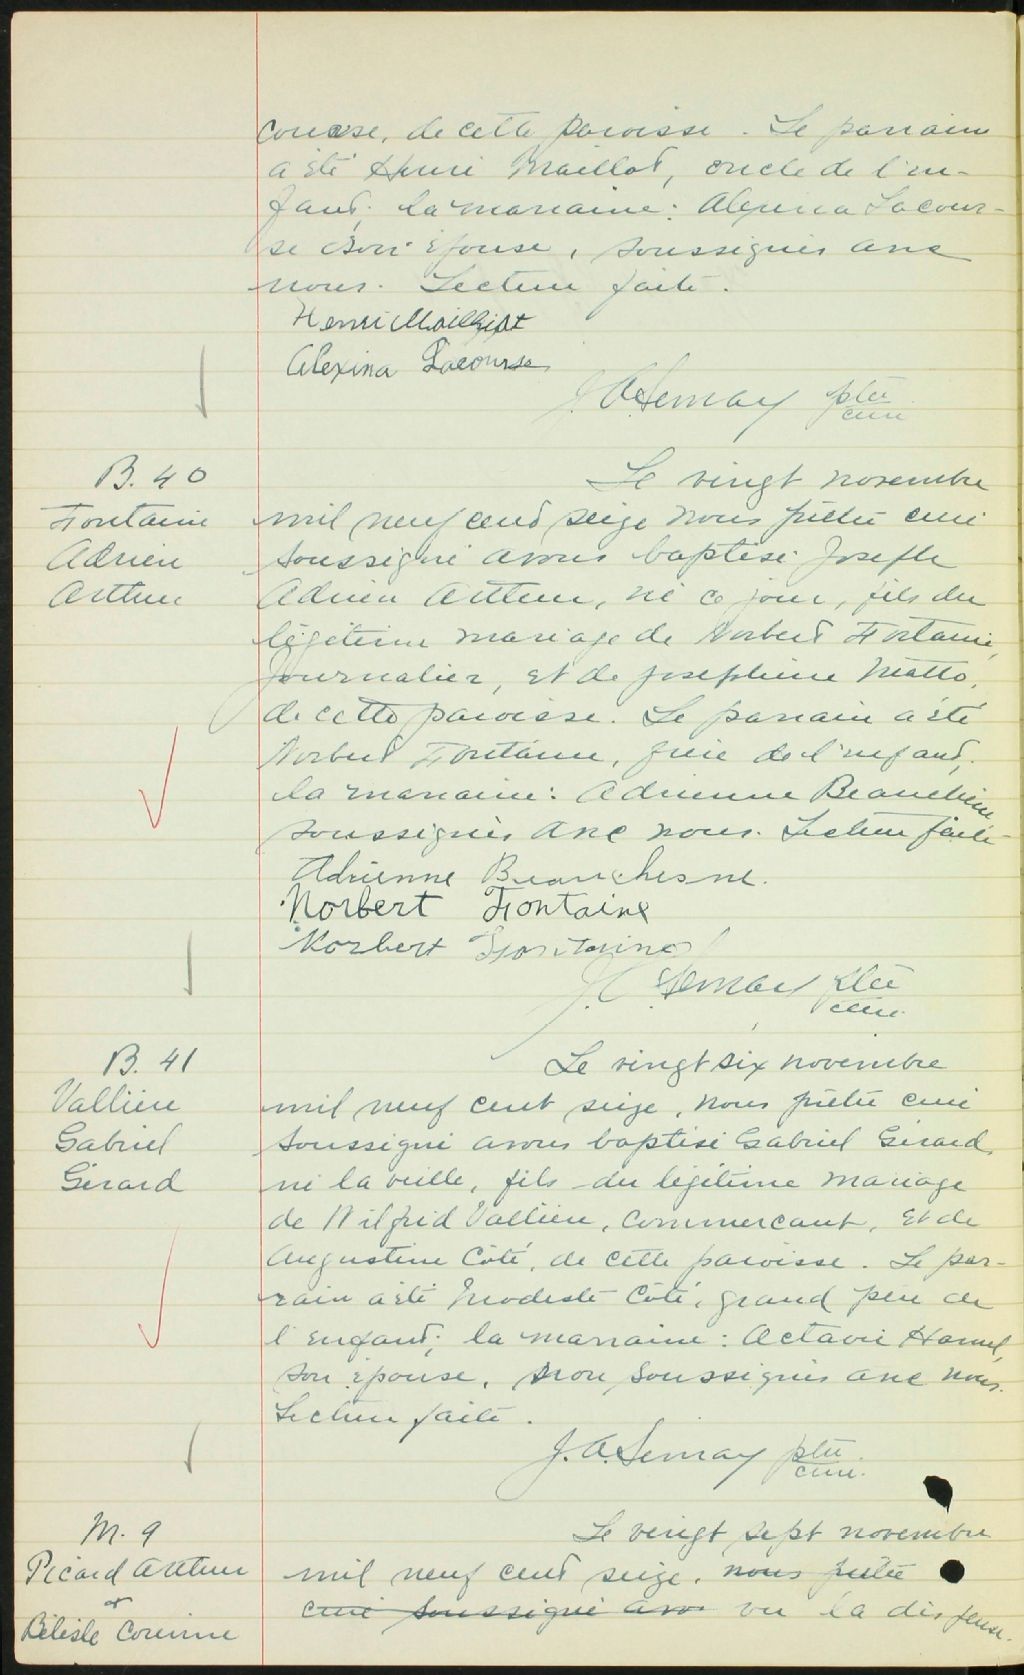 course, de cette paroisse. Le parrain
a été Henri Maillot, oncle de l'en-
fant; la marraine: Alexina Lacour-
se son épouse, soussignés avec
nous. Lecture faite.
Henri Mailhiot
Alexina Lacourse
J. A. Lemay ptre
curé
B. 40
Fontaine
Adrien
Arthur
Le vingt novembre
mil neuf cent seize nous prêtre curé
soussigné avons baptisé Joseph
Adrien Arthur, né ce jour, fils du
légitime mariage de Norbert Fontaine,
journalier, et de Josephine Watto,
de cette paroisse. Le parrain a été
Norbert Fontaine, frère de l'enfant,
la marraine: Adrienne Beauchesne
soussignés avec nous. Lecture faite
Adrienne Beauchesne.
Norbert Fontaine
Norbert Fontaine
J. A. Lemay ptre
curé.
B. 41
Vallière
Gabriel
Gérard
Le vingt six novembre
mil neuf cent seize, nous prêtre curé
soussigné avons baptisé Gabriel Gérard,
né la veille, fils du légitime mariage
de Wilfrid Vallière, commerçant, et de
Augustine Côté, de cette paroisse. Le par-
rain a été Modeste Côté, grand père de
l'enfant; la marraine: Octavie Hamel,
son épouse, non soussignés avec nous.
Lecture faite.
J. A. Lemay ptre
curé.
M. 9
Picard Arthur
&
Bélisle Corinne
Le vingt sept novembre
mil neuf cent seize, nous prêtre
curé soussigné avo vu la dispense